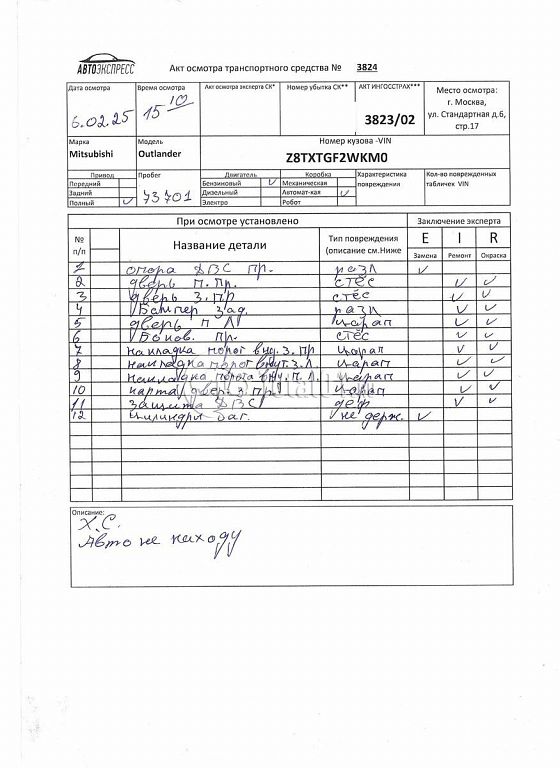 АВТОЭКСПРЕСС
Акт осмотра транспортного средства № 3824
Дата осмотра Время осмотра Акт осмотра эксперта СК* Номер убытка СК** АКТ ИНГОССТРАХ*** Место осмотра:
г. Москва,
ул. Стандартная д.6,
стр.17
6.02.25 15 10 3823/02
Марка Модель Номер кузова -VIN
Mitsubishi Outlander Z8TXTGF2WKM0
Привод Пробег Двигатель Коробка Характеристика повреждении Кол-во поврежденных табличек VIN
Передний Бензиновый V Механическая
Задний 73701 Дизельный Автомат-кая V
Полный V Электро Робот
При осмотре установлено Заключение эксперта
№ п/п Название детали Тип повреждения (описание см.Ниже E I R
Замена Ремонт Окраска
1 опора ДВС пр. разл V
2 дверь п. пр. стёс V V
3 дверь з. пр стёс V V
4 Бампер зад. разл V V
5 дверь п л царап V V
6 Боков. пр. стёс V V
7 накладка порог внут. з. пр царап V V
8 накладка порог внут. з. л. царап V V
9 накладка порога внут. п. л. царап V V
10 карта двер. з пр. царап V V
11 защита ДВС деф V V
12 цилиндры баг. не держ. V
Описание:
Х.С.
Авто не на ходу